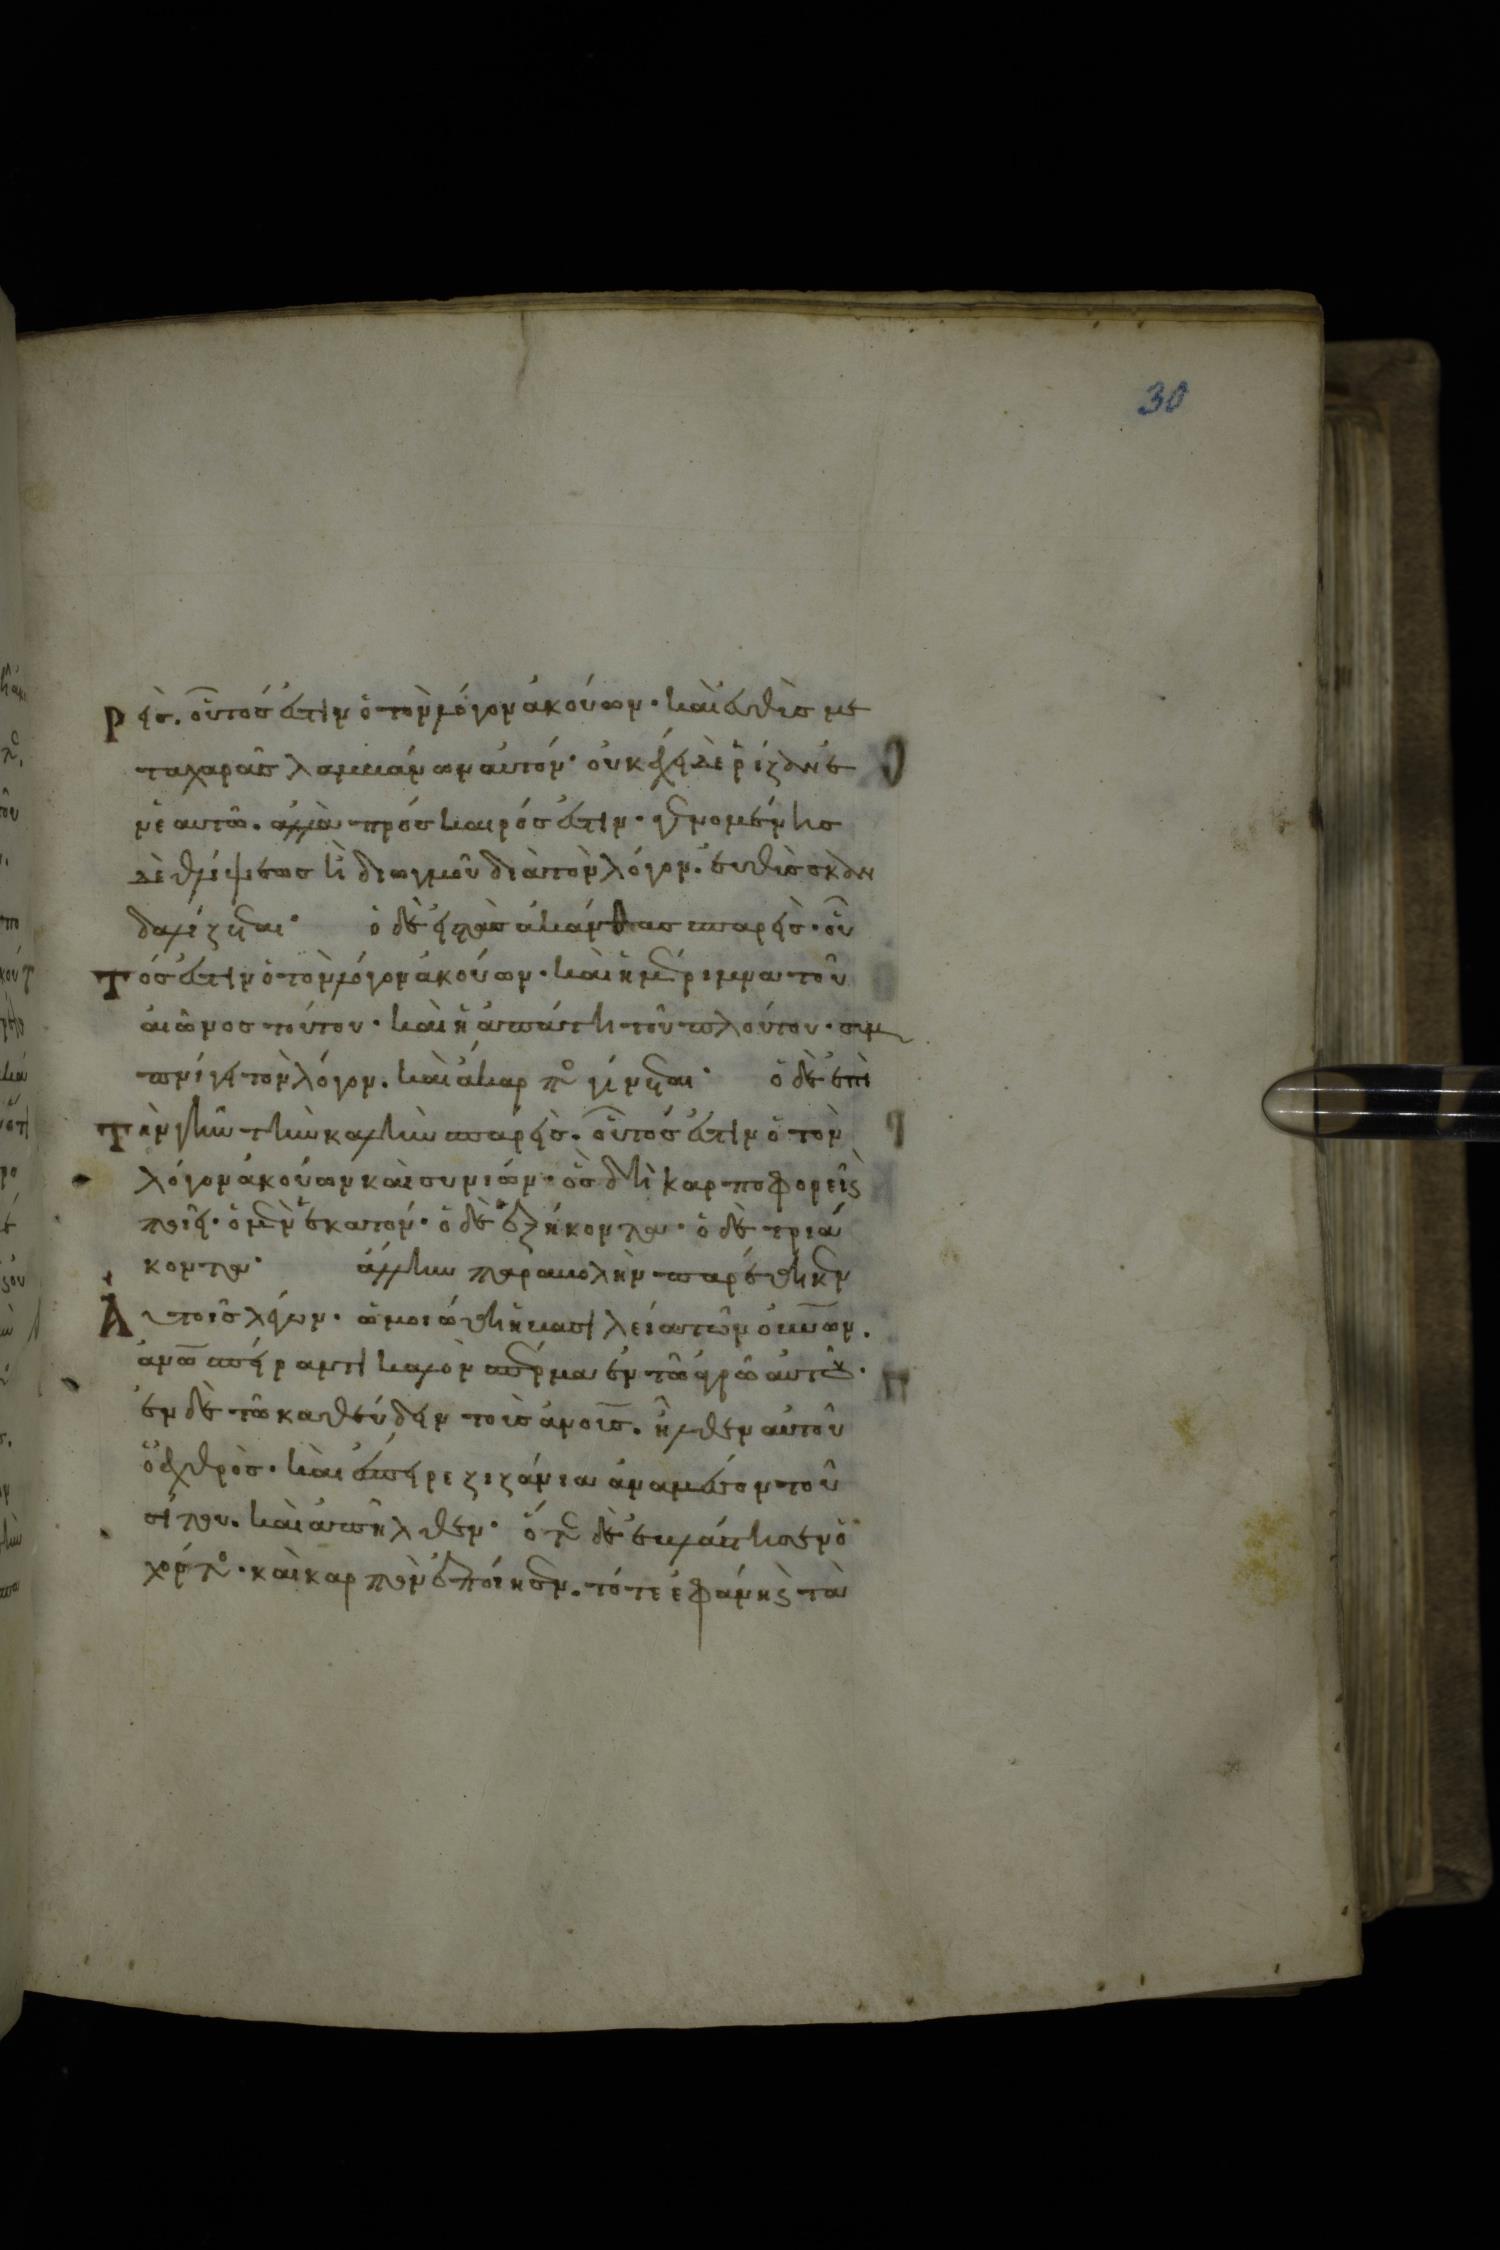 30
ρεὶς. οὗτός ἐστιν ὁ τὸν λόγον ἀκούων· καὶ εὐθὺς με
τα χαρᾶς λαμβάνων αὐτόν· οὐκ ἔχει δὲ ῥίζαν ἐ
ν ἑαυτῶ. ἀλλὰ πρόσκαιρός ἐστιν· γενομένης
δὲ θλίψεως ἢ διωγμοῦ διὰ τὸν λόγον. εὐθὺς σκαν
δαλίζεται· ὁ δὲ εἰς τὰς ἀκάνθας σπαρεὶς· οὗ
τός ἐστιν ὁ τὸν λόγον ἀκούων· καὶ ἡ μέριμνα τοῦ
αἰῶνος τούτου· καὶ ἡ ἀπάτη τοῦ πλούτου· συμ
πνίγει τὸν λόγον. καὶ ἄκαρπος γίνεται· ὁ δὲ ἐπὶ
τὴν γῆν τὴν καλὴν σπαρεὶς. οὗτός ἐστιν ὁ τὸν
λόγον ἀκούων καὶ συνιών· ὃς δὴ καρποφορεῖ καὶ
ποιεῖ· ὁ μὲν ἑκατόν· ὁ δὲ ἑξήκοντα· ὁ δὲ τριά
κοντα· ἄλλην παραβολὴν παρέθηκεν
αὐτοῖς λέγων· ὡμοιώθη ἡ βασιλεία τῶν οὐνων.
ἀνωι σπείραντι καλὸν σπέρμα ἐν τῶ ἀγρῶ αὐτοῦ·
ἐν δὲ τῶ καθεύδειν τοὺς ἀνους. ἦλθεν αὐτοῦ
ὁ ἐχθρὸς· καὶ ἔσπειρε ζιζάνια ἀναμέσον τοῦ
σίτου. καὶ ἀπῆλθεν· ὅτε δὲ ἐβλάστησεν ὁ
χόρτος· καὶ καρπὸν ἐποίησεν. τότε ἐφάνη καὶ τὰ